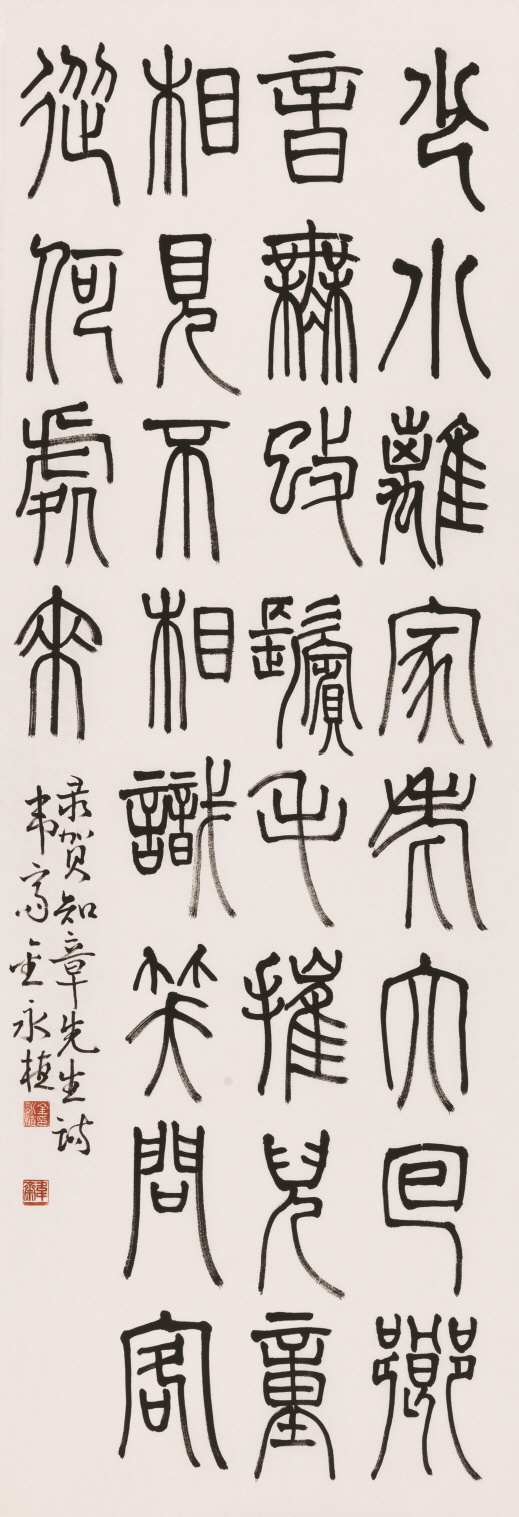 少小離家老大回鄉
音無改鬢毛摧兒童
相見不相識笑問客
從何處來
录贺知章先生诗
韦斋金永植